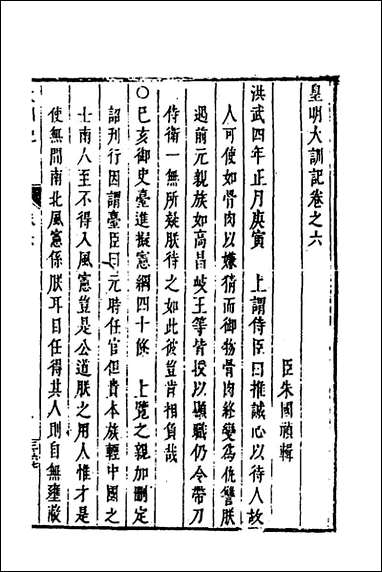 皇明大訓記卷之六
臣朱國禎輯
洪武四年正月庚寅　上謂侍臣曰推誠心以待人故
人可使如骨肉以嫌猜而御物骨肉終變為仇讐朕
遇前元親族如高昌岐王等皆授以顯職仍令帶刀
侍衛一無所疑朕待之如此彼豈肯相負哉
○己亥御史臺進擬憲綱四十條　上覽之親加刪定
詔刊行因謂臺臣曰元時任官但貴本族輕中國之
士南人至不得入風憲豈是公道朕之用人惟才是
使無間南北風憲係朕耳目任得其人則自無壅蔽